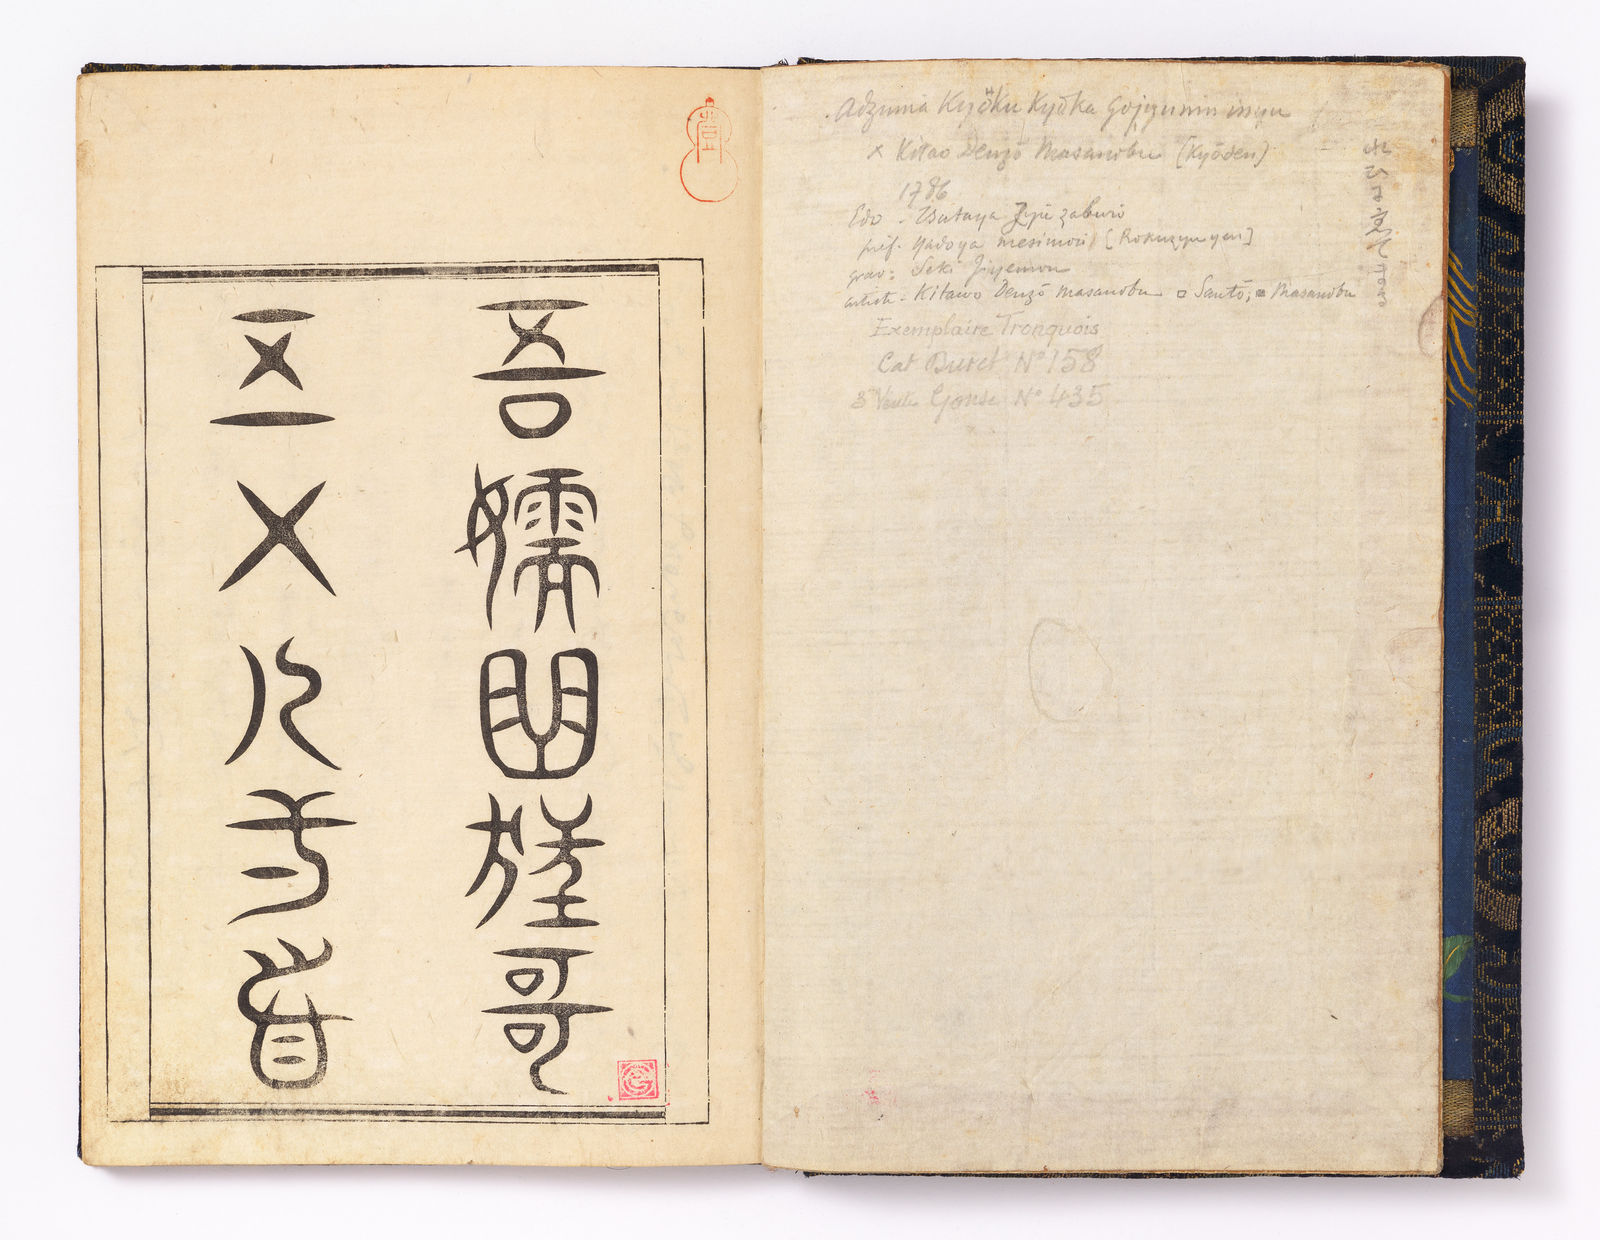 Adzuma Kyŏku Kyōka Gojyunin insyu
× Kitao Denzō Masanobu (Kyōden)
1786
Edo - Tsutaya Jyū zaburō
préf. Yadoya mesimori [Rokuzyuyen]
grav: Seki Jiyemon
artiste - Kitawo Denzō Masanobu □ Santō, ■ Masanobu
Exemplaire Tronquois
Cat Buret N° 158
3e Vente Gonse N° 435
吾嬬曲狂哥
五十人一首